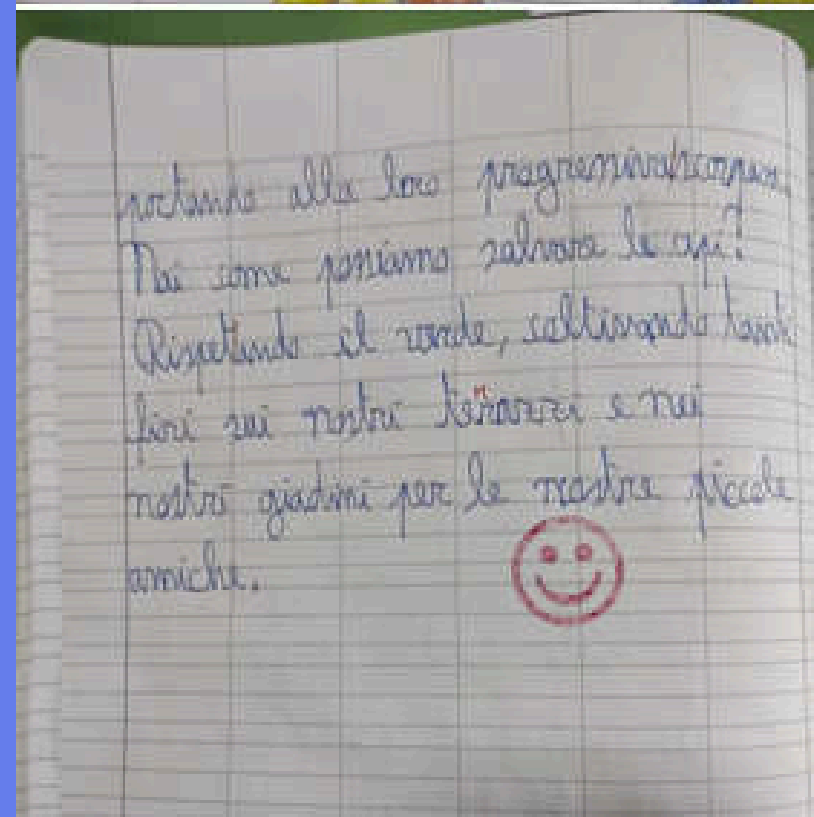 portando alla loro progressiva scompars
Noi come possiamo salvare le api?
Rispetando il verde, coltivando tanti
fiori sui nostri terrazzi e nei
nostri giadini per le nostre piccole
amiche.